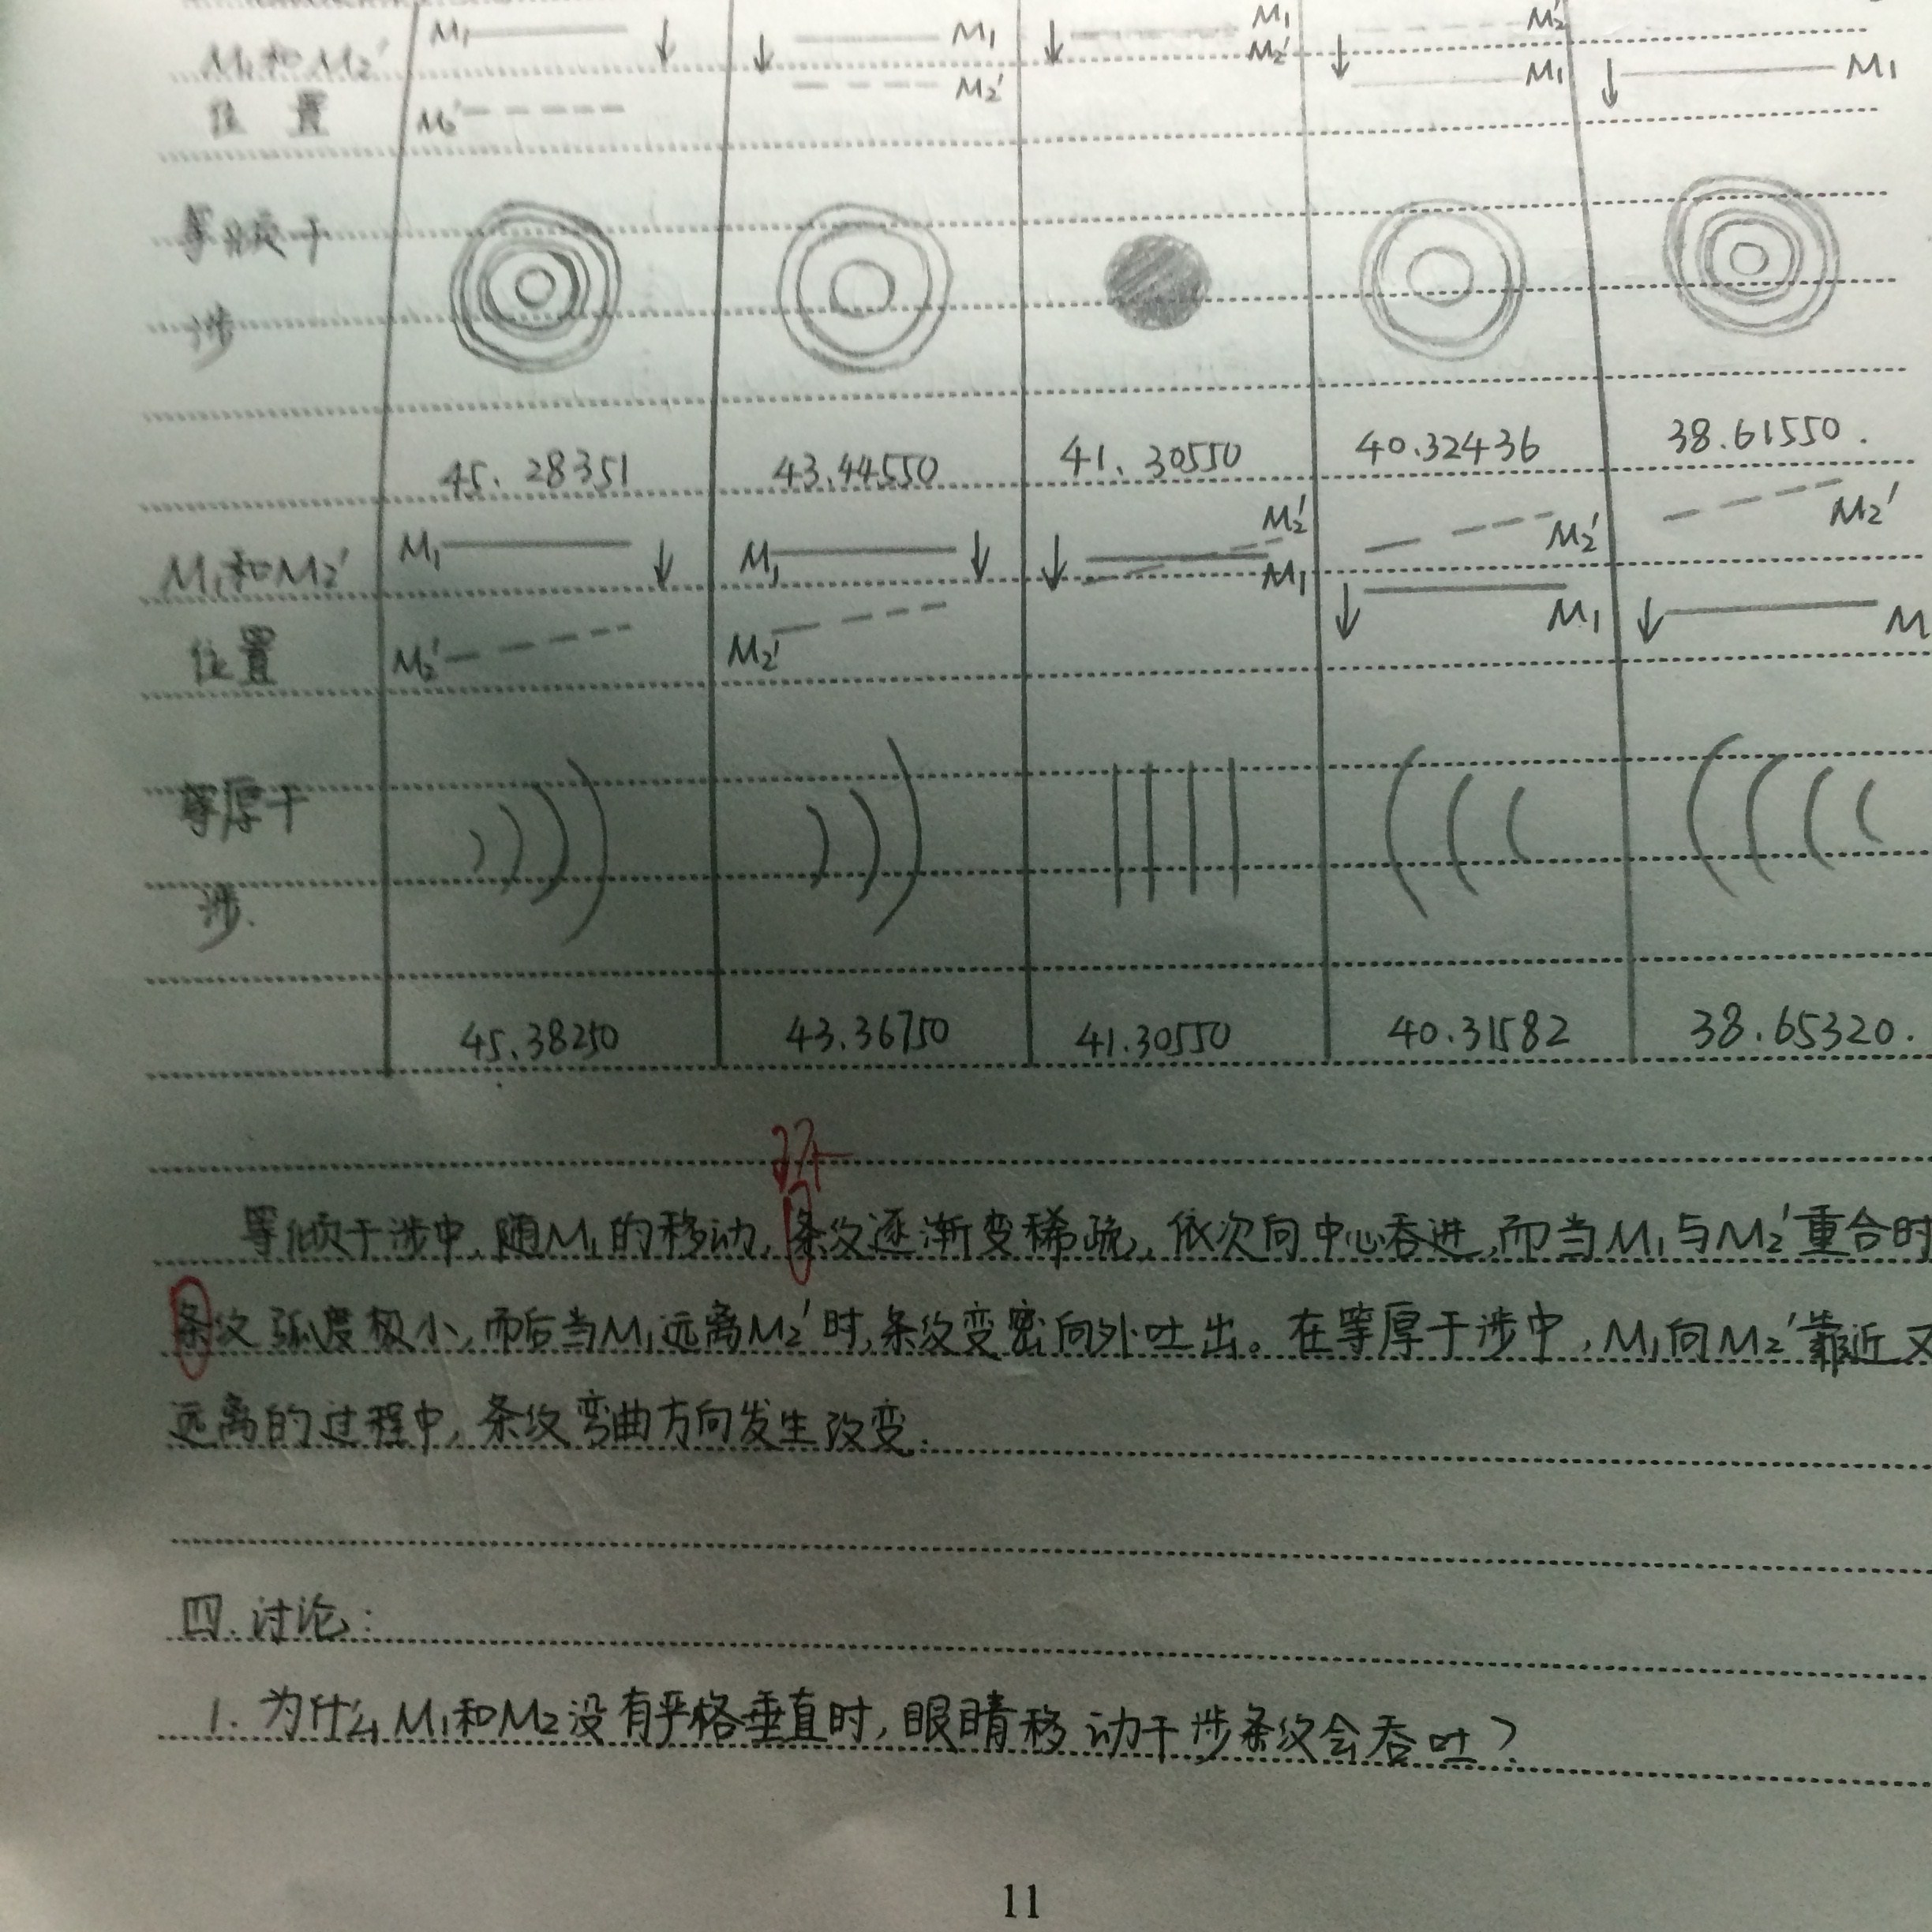 M₁ M₁ M₁ M₂′
M₁和M₂′ M₂′ M₂′ M₁ M₁
位置 M₂′
等倾干
涉
45.28351 43.44550 41.30550 40.32436 38.61550.
M₁ M₁ M₂′ M₂′ M₂′
M₁和M₂′ M₁
位置 M₂′ M₂′ M₁ M
等厚干
涉.
45.38250 43.36750 41.30550 40.31582 38.65320.
等倾干涉中,随M₁的移动,条纹逐渐变稀疏,依次向中心吞进,而当M₁与M₂′重合时
条纹弧度极小,而后当M₁远离M₂′时,条纹变密向外吐出。在等厚干涉中,M₁向M₂′靠近又
远离的过程中,条纹弯曲方向发生改变.
四.讨论:
1.为什么M₁和M₂没有严格垂直时,眼睛移动干涉条纹会吞吐?
11